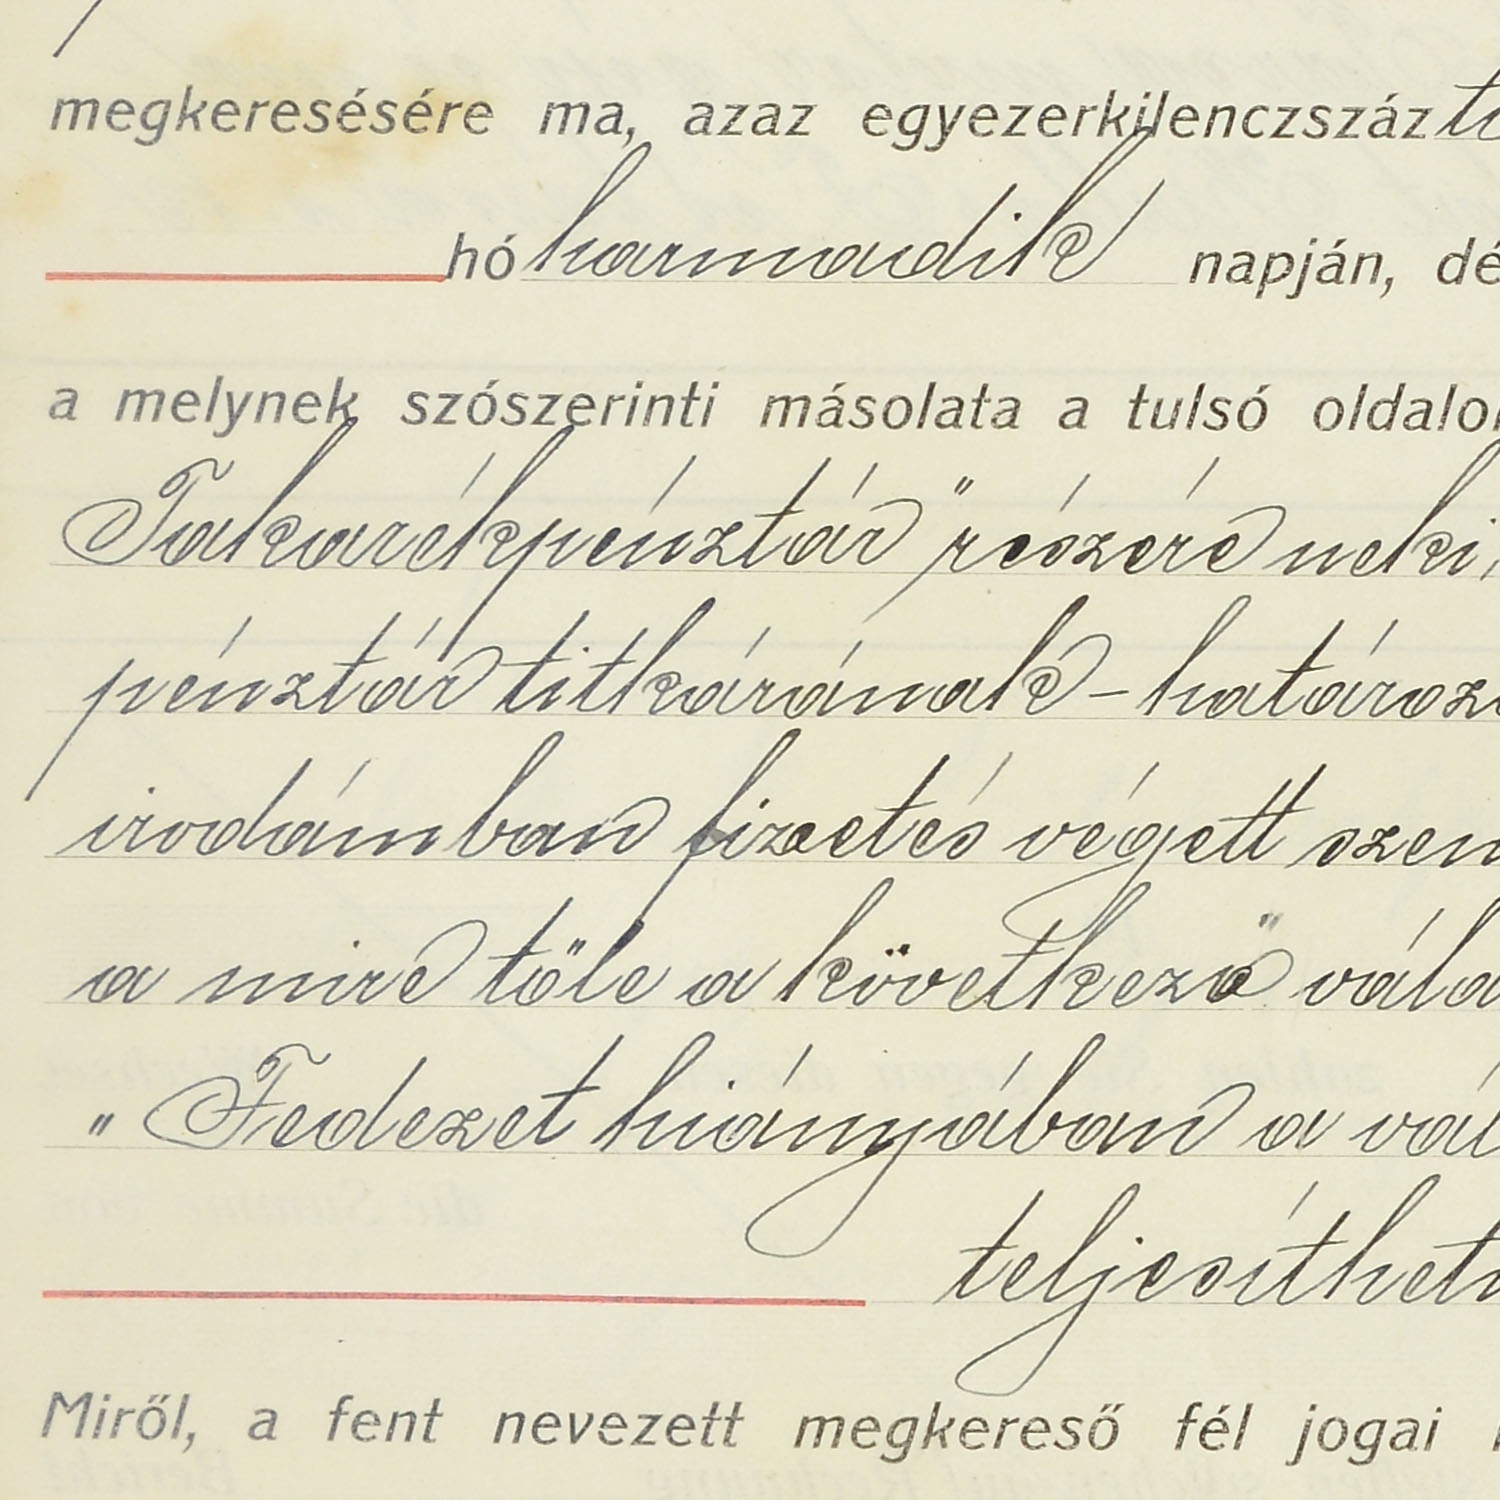 megkeresésére ma, azaz egyezerkilenczszáz
hó harmadik napján, dé
a melynek szószerinti másolata a tulsó oldalon
Takarékpénztár" részére neki,
pénztár titkárának - határoz
irodámban fizetés végett szem
a mire tőle a következő vála
"Fedezet hiányában a vál
teljesíthet
Miről, a fent nevezett megkereső fél jogai